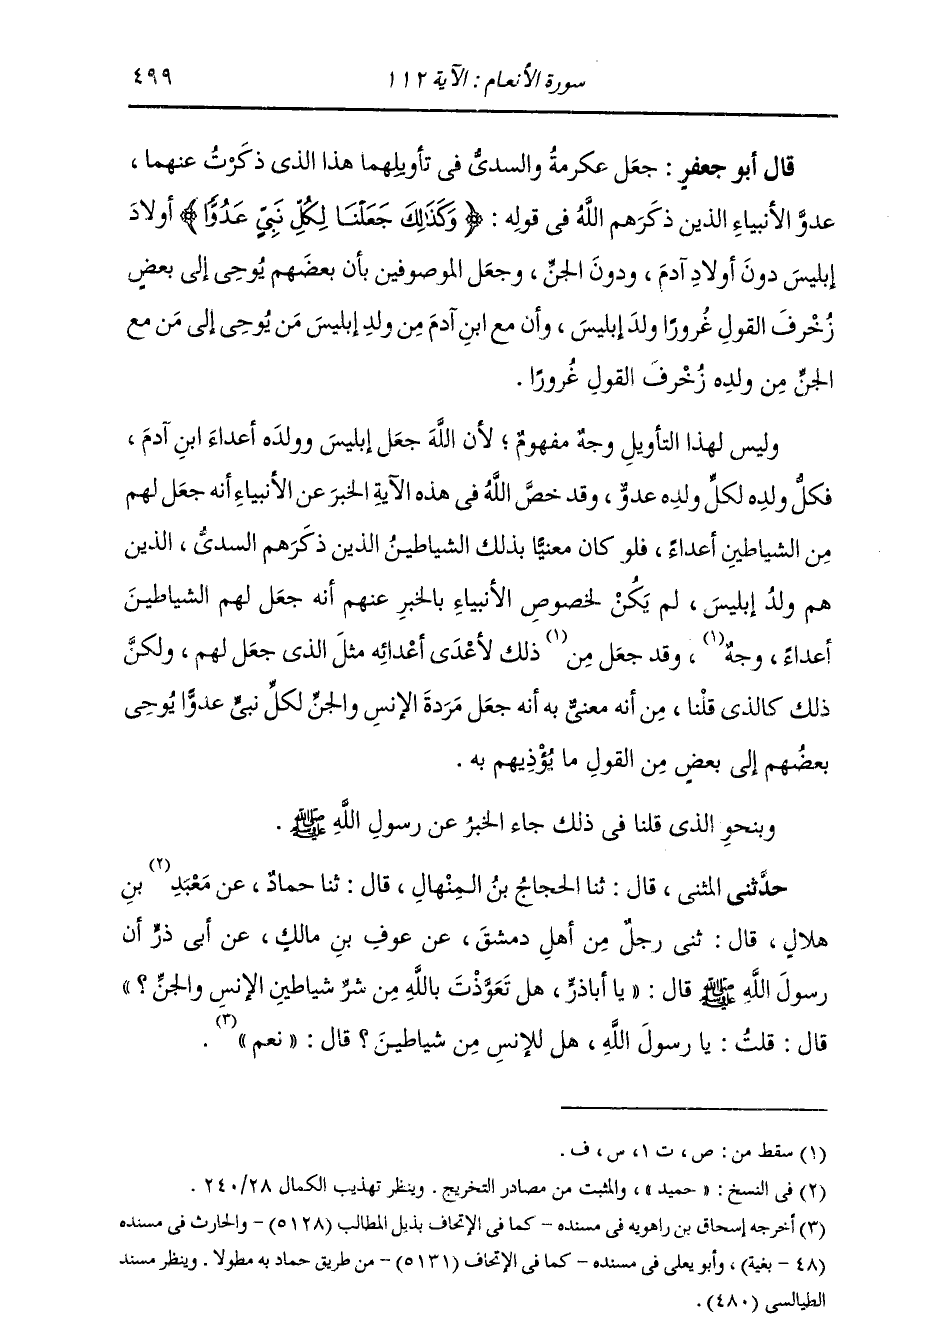 سورة الأنعام : الآية ١١٢ ٤٩٩
قال أبو جعفرٍ : جعَل عكرمةُ والسدىُّ فى تأويلِهما هذا الذى ذكَرْتُ عنهما ،
عدوَّ الأنبياءِ الذين ذكَرَهم اللَّهُ فى قولِه : ﴿ وَكَذَٰلِكَ جَعَلْنَا لِكُلِّ نَبِيٍّ عَدُوًّا ﴾ أولادَ
إبليسَ دونَ أولادِ آدمَ ، ودونَ الجنِّ ، وجعَل الموصوفين بأن بعضَهم يُوحِى إلى بعضٍ
زُخْرفَ القولِ غُرورًا ولدَ إبليسَ ، وأن مع ابنِ آدمَ مِن ولدِ إبليسَ مَن يُوحِى إلى مَن مع
الجنِّ مِن ولدِه زُخْرفَ القولِ غُرورًا .
وليس لهذا التأويلِ وجهٌ مفهومٌ ؛ لأن اللَّهَ جعَل إبليسَ وولدَه أعداءَ ابنِ آدمَ ،
فكلُّ ولدِه لكلِّ ولدِه عدوٌّ ، وقد خصَّ اللَّهُ فى هذه الآيةِ الخبرَ عن الأنبياءِ أنه جعَل لهم
مِن الشياطينِ أعداءً ، فلو كان معنيًّا بذلك الشياطينُ الذين ذكَرَهم السدىُّ ، الذين
هم ولدُ إبليسَ ، لم يَكُنْ لخصوصِ الأنبياءِ بالخبرِ عنهم أنه جعَل لهم الشياطينَ
أعداءً ، وجهٌ(١) ، وقد جعَل مِن(١) ذلك لأعْدَى أعْدائِه مثلَ الذى جعَل لهم ، ولكنَّ
ذلك كالذى قلْنا ، مِن أنه معنىٌّ به أنه جعَل مَردةَ الإنسِ والجنِّ لكلِّ نبىٍّ عدوًّا يُوحِى
بعضُهم إلى بعضٍ مِن القولِ ما يُؤْذِيهم به .
وبنحوِ الذى قلنا فى ذلك جاء الخبرُ عن رسولِ اللَّهِ ﷺ .
حدَّثنى المثنى ، قال : ثنا الحجاجُ بنُ المِنْهالِ ، قال : ثنا حمادٌ ، عن مَعْبَدِ(٢) بنِ
هلالٍ ، قال : ثنى رجلٌ مِن أهلِ دمشقَ ، عن عوفِ بنِ مالكٍ ، عن أبى ذرٍّ أن
رسولَ اللَّهِ ﷺ قال : « يا أباذرٍّ ، هل تَعَوَّذْتَ باللَّهِ مِن شرِّ شياطينِ الإنسِ والجنِّ ؟ »
قال : قلتُ : يا رسولَ اللَّهِ ، هل للإنسِ مِن شياطينَ ؟ قال : « نعم »(٣) .
(١) سقط من : ص ، ت ١ ، س ، ف .
(٢) فى النسخ : « حميد » ، والمثبت من مصادر التخريج . وينظر تهذيب الكمال ٢٨/٢٤٠ .
(٣) أخرجه إسحاق بن راهويه فى مسنده – كما فى الإتحاف بذيل المطالب (٥١٢٨) – والحارث فى مسنده
(٤٨ – بغية) ، وأبو يعلى فى مسنده – كما فى الإتحاف (٥١٣١) – من طريق حماد به مطولا . وينظر مسند
الطيالسى (٤٨٠) .